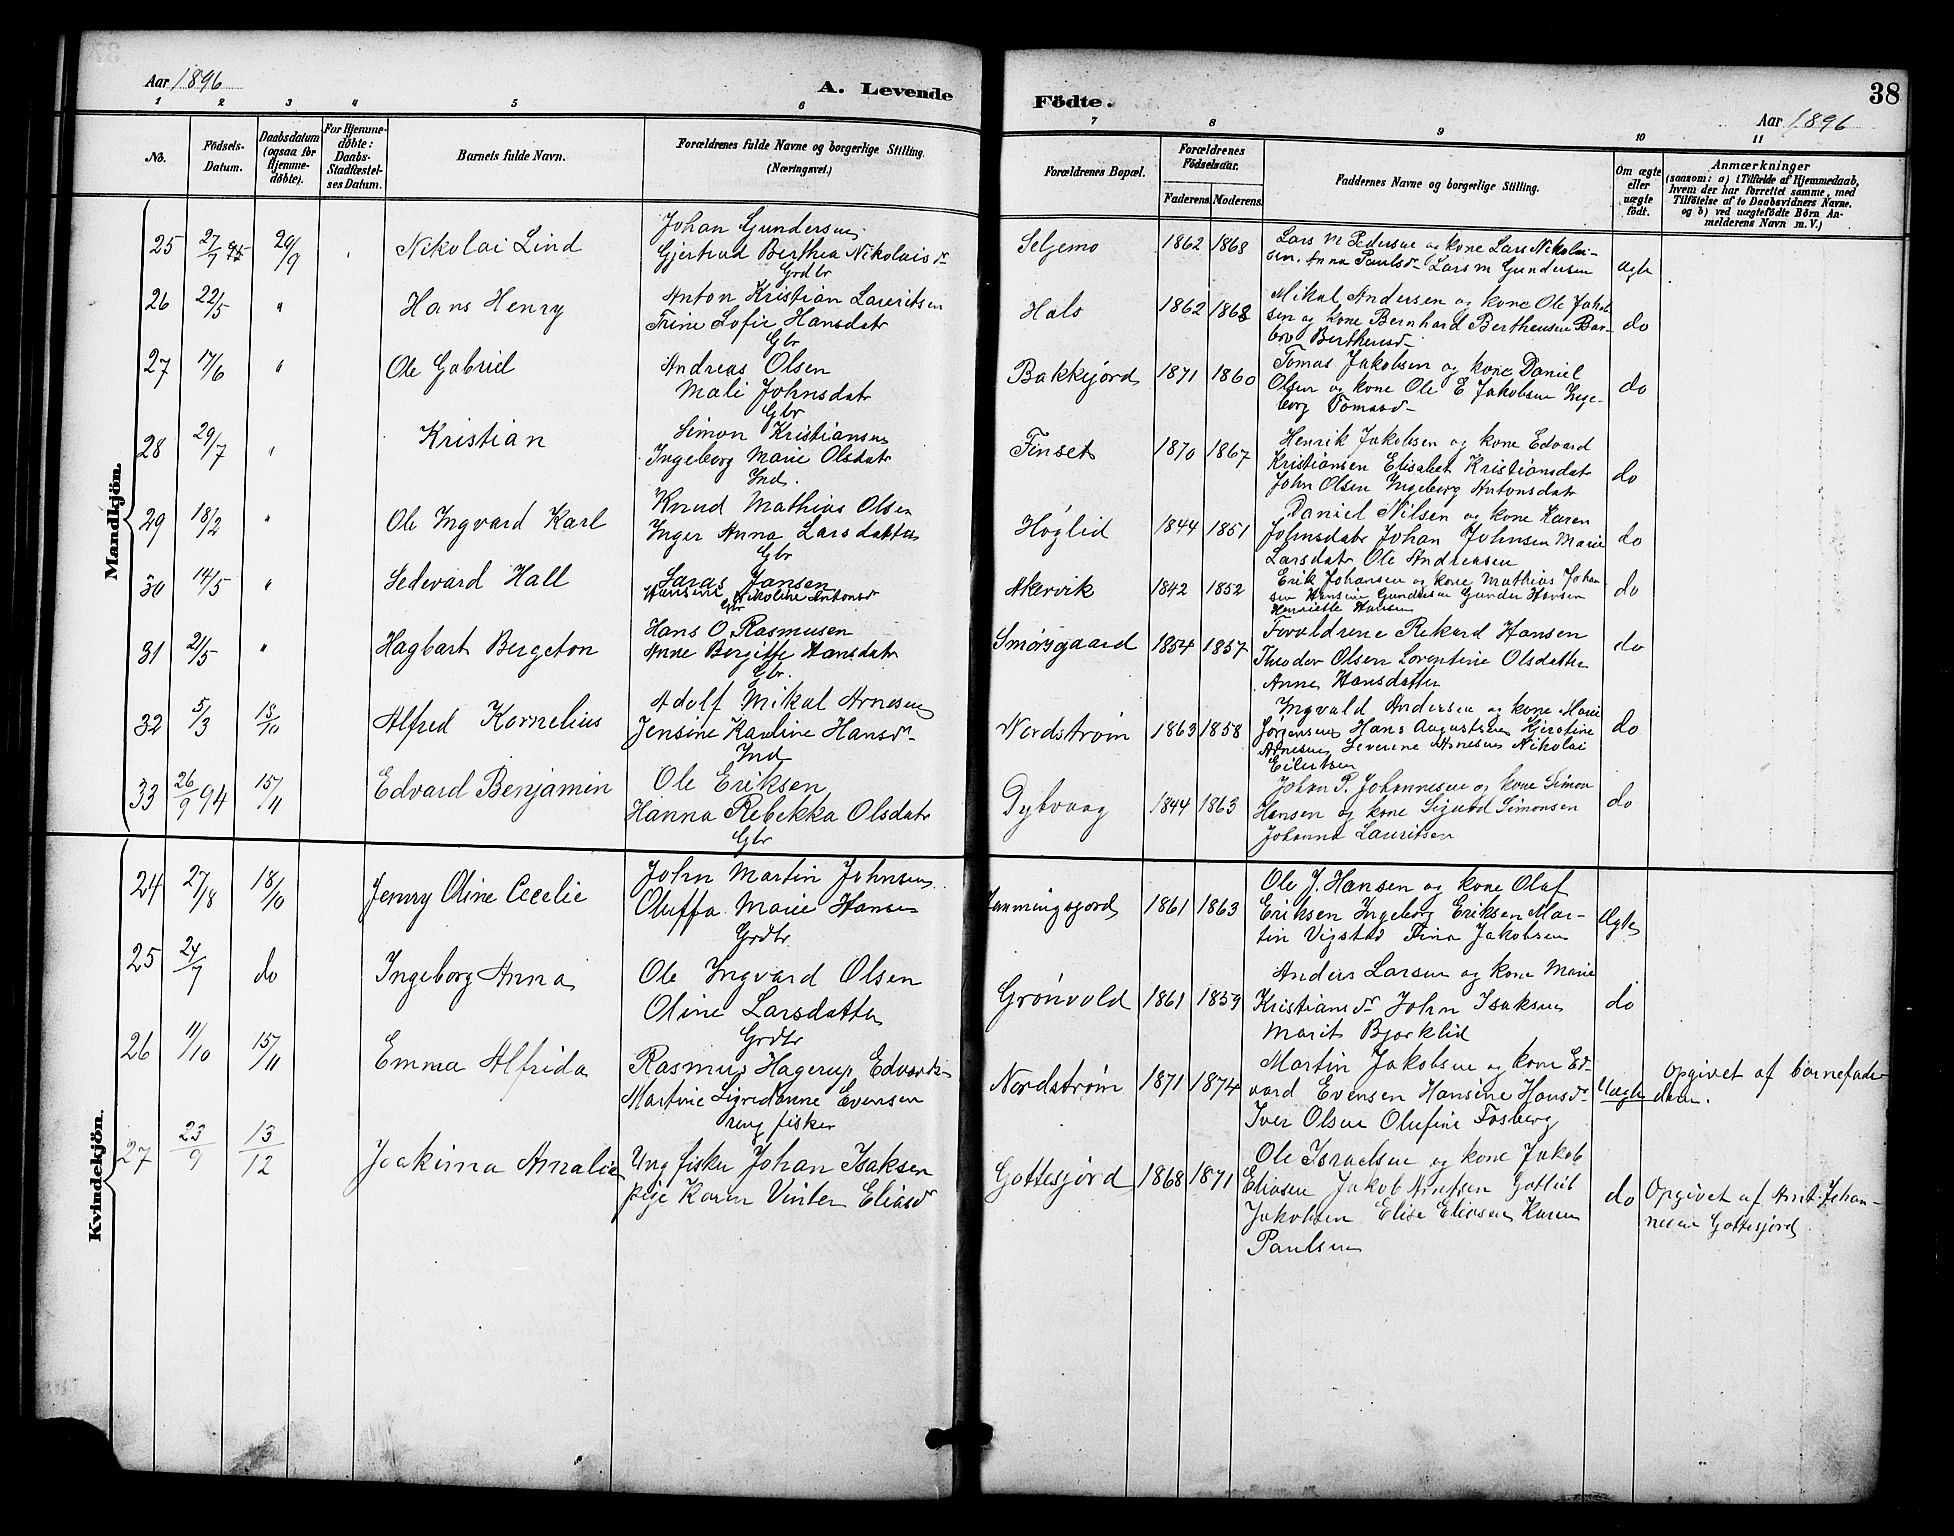 Aar 1896
A. Levende
1 2 3 4 5 6
No.
Födsels-Datum.
Daabsdatum (ogsaa for Hjemme-döbte).
For Hjemme-döbte: Daabs-Stadfæstel-ses Datum.
Barnets fulde Navn.
Forældrenes fulde Navne og borgerlige Stilling. (Næringsvei.)
Mandkjön.
25 27/7 95 20/9 Nikolai Lind
Johan Gundersen
Gjertrud Berthea Nikolaisdr
Grdbr
26 22/5 " Hans Henry
Anton Kristian Lauritsen
Trine Sofie Hansdatr
Gbr
27 17/6 " Ole Gabriel
Andreas Olsen
Mali Johnsdatr
Gbr
28 29/7 " Kristian
Simon Kristiansen
Ingeborg Marie Olsdatr
Ind.
29 18/2 " Ole Ingvard Karl
Knud Mathias Olsen
Inger Anna Larsdatter
Gbr
30 14/5 " Sedevard Hall
Jansen
Nikoline Antonsdr
Gbr
31 21/5 " Hagbart Bergeton
Hans O. Rasmusen
Anne Bergitte Hansdatr
Gbr.
32 5/3 18/10 Alfred Kornelius
Adolf Mikal Arnesen
Jensine Kauline Hansdr
Ind
33 26/9 94 15/11 Edvard Benjamin
Ole Eriksen
Hanna Rebekka Olsdatr
Gbr
Kvindekjön.
24 27/8 18/10 Jenny Oline Cecelie
John Martin Johnsen
Oluffa Marie Hansen
Grdbr
25 24/7 do Ingeborg Anna
Ole Ingvard Olsen
Oline Larsdatter
Grdbr
26 11/10 15/11 Emma Alfrida
Rasmus Hagerup Edvards
Martine Sigridanne Evensen
ung fisker
27 23/9 13/12 Joakima Amalie
Ung fisker Johan Isaksen
pige Karen Vinter Eliasdr
Födte.
38
Aar 1896
7 8 9 10 11
Forældrenes Bopæl.
Forældrenes Födselsaar.
Faderens. Moderens.
Faddernes Navne og borgerlige Stilling.
Om ægte eller uægte födt.
Anmærkninger
(saasom: a) i Tilfælde af Hjemmedaab,
hvem der har forrettet samme, med
Tilföielse af to Daabsvidners Navne.
og b) ved uægtefödte Börn An-
melderens Navn m. V.)
Seljemo 1862 1868
Lars M Pedersen og kone Lars Nikolai-
sen. Anna Paulsdr Lars M Gundersen
ægte
Hals 1862 1868
Mikal Andersen og kone Ole Jakob
sen og kone Bernhard Bertheusen Bar-
bro Bertheusdr
do
Bakkejord 1871 1860
Tomas Jakobsen og kone Daniel
Olsen og kone Ole E Jakobsen Inge-
borg Tomasdr
do
Finset 1870 1867
Henrik Jakobsen og kone Edvard
Kristiansen Elisabet Kristiansdatr
John Olsen Ingeborg Antonsdatr
do
Høglid 1844 1851
Daniel Nilsen og kone Karen
Johnsdatr Johan Johnsen Marie
Larsdatr Ole Andreasen
do
Akervik 1842 1852
Erik Johansen og kone Mathias Johan
sen Hansine Gundersen Gunder Hansen
Henriette Hansen
do
Smørsgaard 1854 1857
Forældrene Rekard Hansen
Theodor Olsen Lorentine Olsdatter
Anne Hansdatter
do
Nordstrøm 1863 1858
Ingvald Andersen og kone Marie
Jørgensen Hans Augustsen Kjerstine
Arnesen Severine Arnesen Nikolai
Eilertsen
do
Dybvaag 1844 1863
Johan P. Johannesen og kone Simon
Hansen og kone Sigurd Simonsen
Johanna Lauritsen
do
1861 1863
Ole J. Hansen og kone Olaf
Eriksen Ingeborg Eriksen Mar-
tin Vigstad Fina Jakobsen
Ægte
Grønvold 1861 1859
Anders Larsen og kone Marie
Kristiansdr John Isaksen
Marit Bjørklid
do
Nordstrøm 1871 1874
Martin Jakobsen og kone Ed-
vard Evensen Hansine Hansdr
Iver Olsen Olufine Fosberg
Uægte
Opgivet af barnefade-
ren.
Gottesjord 1868 1871
Ole Israelsen og kone Jakob
Eliasen Jakob Arntsen Gotlieb
Jakobsen Elise Eliasen Karen
Paulsen
do
Opgivet af Arnt Johan-
nesen Gottesjord